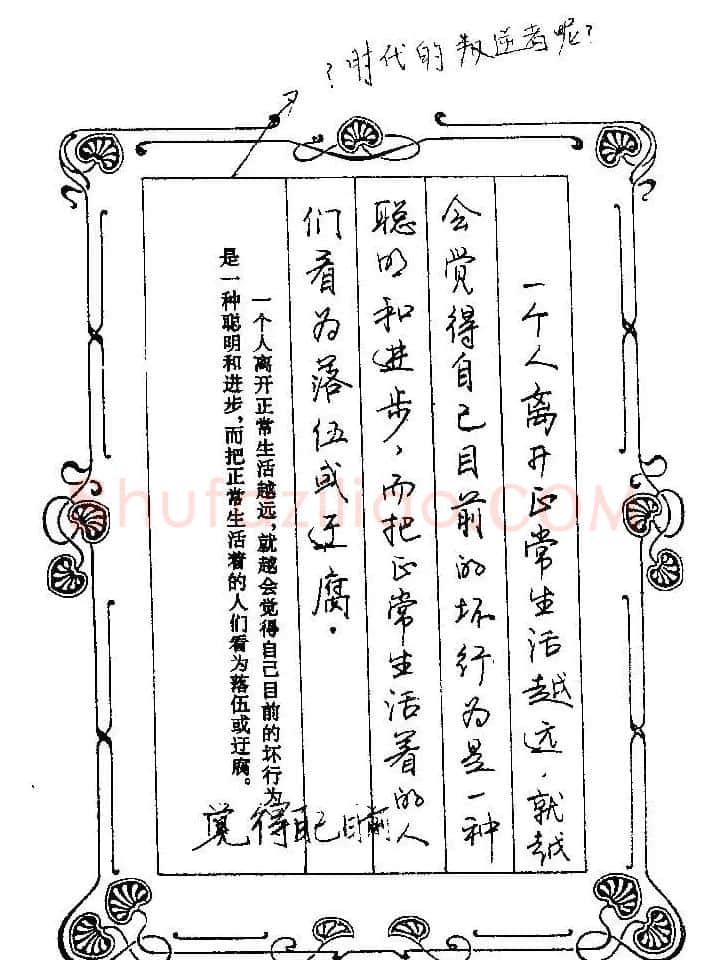 ？时代的叛逆者呢？
一个人离开正常生活越远，就越
会觉得自己目前的坏行为是一种
聪明和进步，而把正常生活着的人
们看为落伍或迂腐。
一个人离开正常生活越远，就越会觉得自己目前的坏行为
是一种聪明和进步，而把正常生活着的人们看为落伍或迂腐。
觉得自己目前
shufaziliao.COM